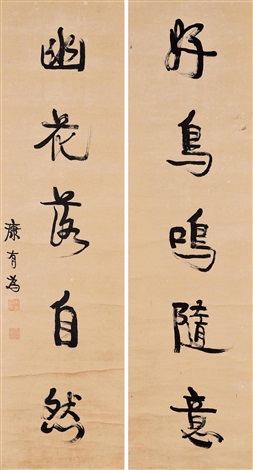 好鳥鳴隨意
幽花落自然
康有為